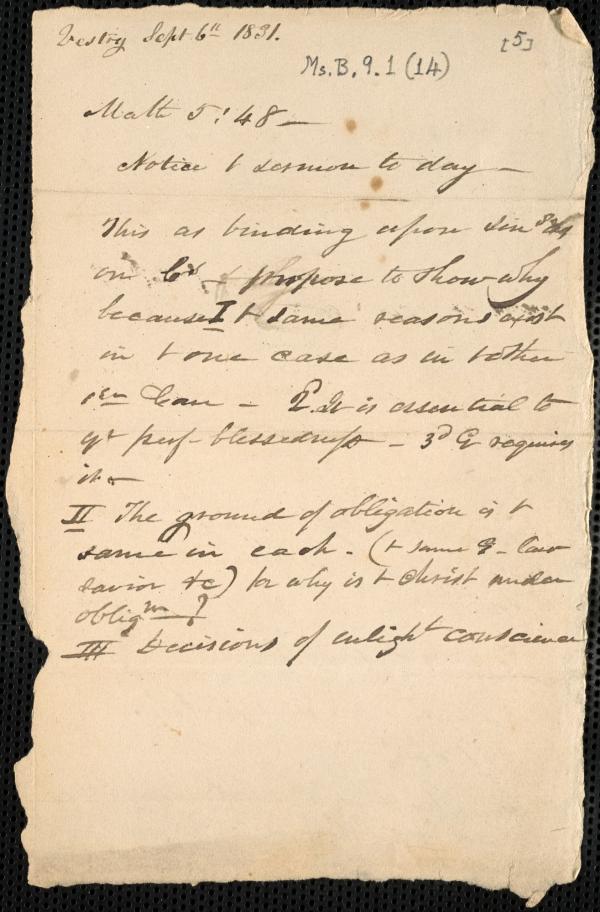 Vestry Sept 6th 1831.
[5]
Ms.B.9.1 (14)
Matt 5:48 —
Notice t sermon to day —
This as binding upon sinrs as
on propose to show why
because I t same reasons exist
in t one case as in t other
— 2. It is essential to
yr perf- blessedness — 3d G requires
it —
II The ground of obligation is t
same in each. (t same G- law
savior &c) for why is t Christn under
obligtn — ?
III Decisions of enlightd conscience